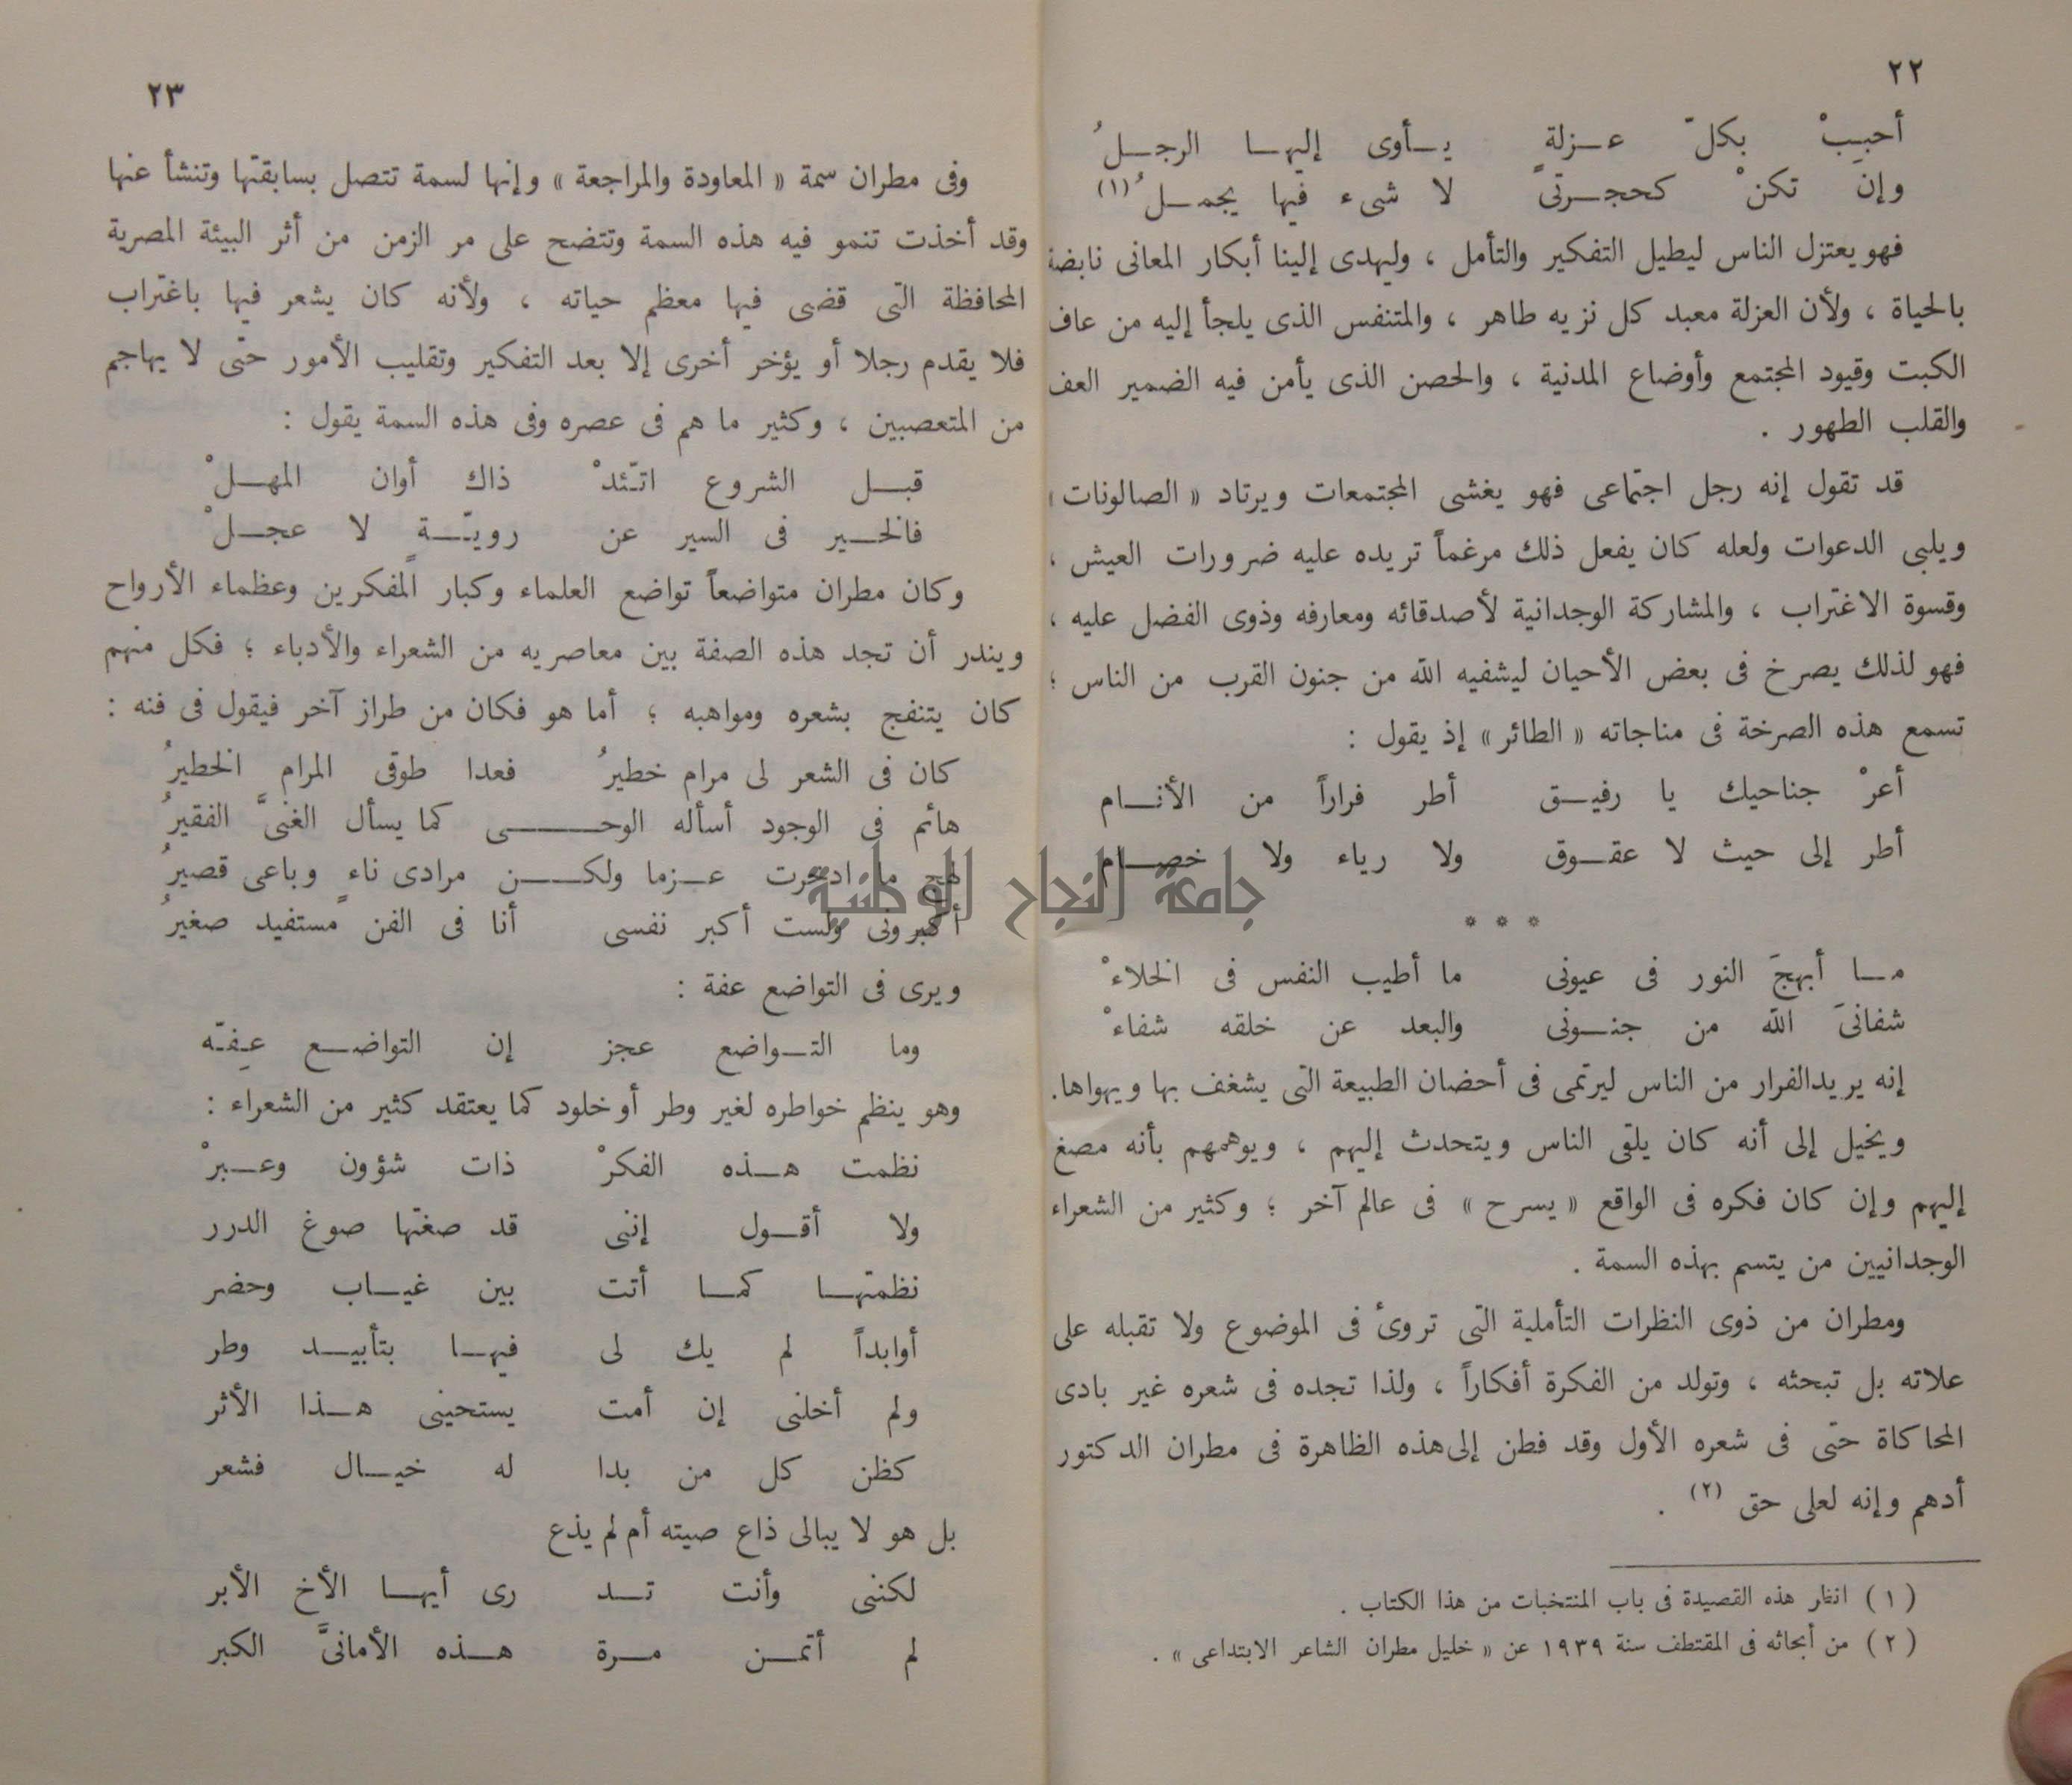 ٢٢
أحبِبْ بكلّ عـزلةٍ يـأوى إليها الرجـلُ
وإن تكنْ كحجـرتى لا شىء فيها يجمـلُ (١)
فهو يعتزل الناس ليطيل التفكير والتأمل ، وليهدى إلينا أبكار المعانى نابضة
بالحياة ، ولأن العزلة معبد كل نزيه طاهر ، والمتنفس الذى يلجأ إليه من عاف
الكبت وقيود المجتمع وأوضاع المدنية ، والحصن الذى يأمن فيه الضمير العف
والقلب الطهور .
قد تقول إنه رجل اجتماعى فهو يغشى المجتمعات ويرتاد « الصالونات »
ويلبى الدعوات ولعله كان يفعل ذلك مرغماً تريده عليه ضرورات العيش ،
وقسوة الاغتراب ، والمشاركة الوجدانية لأصدقائه ومعارفه وذوى الفضل عليه ،
فهو لذلك يصرخ فى بعض الأحيان ليشفيه الله من جنون القرب من الناس ؛
تسمع هذه الصرخة فى مناجاته « الطائر » إذ يقول :
أعرْ جناحيك يا رفيـق أطر فراراً من الأنـام
أطر إلى حيث لا عقـوق ولا رياء ولا خصـام
* * *
مـا أبهجَ النور فى عيونى ما أطيب النفس فى الخلاءْ
شفانىَ الله من جنـونى والبعد عن خلقه شفاءْ
إنه يريدالفرار من الناس ليرتمى فى أحضان الطبيعة التى يشغف بها ويهواها.
ويخيل إلى أنه كان يلقى الناس ويتحدث إليهم ، ويوهمهم بأنه مصغ
إليهم وإن كان فكره فى الواقع « يسرح » فى عالم آخر ؛ وكثير من الشعراء
الوجدانيين من يتسم بهذه السمة .
ومطران من ذوى النظرات التأملية التى تروئ فى الموضوع ولا تقبله على
علاته بل تبحثه ، وتولد من الفكرة أفكاراً ، ولذا تجده فى شعره غير بادى
المحاكاة حتى فى شعره الأول وقد فطن إلى هذه الظاهرة فى مطران الدكتور
أدهم وإنه لعلى حق (٢) .
(١) انظر هذه القصيدة فى باب المنتخبات من هذا الكتاب .
(٢) من أبحاثه فى المقتطف سنة ١٩٣٩ عن « خليل مطران الشاعر الابتداعى » .
٢٣
وفى مطران سمة « المعاودة والمراجعة » وإنها لسمة تتصل بسابقتها وتنشأ عنها
وقد أخذت تنمو فيه هذه السمة وتتضح على مر الزمن من أثر البيئة المصرية
المحافظة التى قضى فيها معظم حياته ، ولأنه كان يشعر فيها باغتراب
فلا يقدم رجلا أو يؤخر أخرى إلا بعد التفكير وتقليب الأمور حتى لا يهاجم
من المتعصبين ، وكثير ما هم فى عصره وفى هذه السمة يقول :
قبـل الشروع اتـّئدْ ذاك أوان المهـلْ
فالخـير فى السير عن رويـّـة لا عجـلْ
وكان مطران متواضعاً تواضع العلماء وكبار المفكرين وعظماء الأرواح
ويندر أن تجد هذه الصفة بين معاصريه من الشعراء والأدباء ؛ فكل منهم
كان يتنفج بشعره ومواهبه ؛ أما هو فكان من طراز آخر فيقول فى فنه :
كان فى الشعر لى مرام خطيرُ فعدا طوقى المرام الخطيرُ
هائم فى الوجود أسأله الوحـــى كما يسأل الغنىَّ الفقيرُ
لهج ما ادخرت عـزما ولكــن مرادى ناءٍ وباعى قصيرُ
أكبرونى ولست أكبر نفسى أنا فى الفن مستفيد صغيرُ
ويرى فى التواضع عفة :
وما التـواضع عجز إن التواضـع عـِفـّه
وهو ينظم خواطره لغير وطر أو خلود كما يعتقد كثير من الشعراء :
نظمت هـذه الفكرْ ذات شؤون وعـبرْ
ولا أقـول إننى قد صغتها صوغ الدرر
نظمتهـا كمـا أتت بين غيـاب وحضر
أوابداً لم يك لى فيهـا بتأبيـد وطر
ولم أخلنى إن أمت يستحيى هـذا الأثر
كظن كل من بدا له خيـال فشعر
بل هو لا يبالى ذاع صيته أم لم يذع
لكننى وأنت تـد رى أيهـا الأخ الأبر
لم أتمـن مـرة هـذه الأمانىَّ الكبر
جامعة النجاح الوطنية